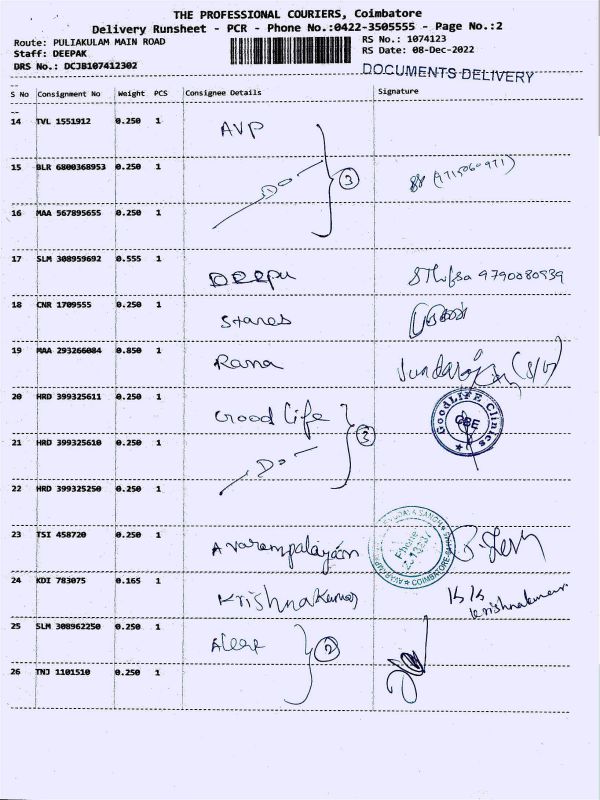 THE PROFESSIONAL COURIERS, Coimbatore
Delivery Runsheet - PCR - Phone No.:0422-3505555 - Page No.:2
Route: PULIAKULAM MAIN ROAD
RS No.: 1074123
Staff: DEEPAK
RS Date: 08-Dec-2022
DRS No.: DCJB107412302
DOCUMENTS DELIVERY
S No Consignment No Weight PCS Consignee Details Signature
14 TVL 1551912 0.250 1 AVP
15 BLR 6800368953 0.250 1 Do 3 (9715060971)
16 MAA 567895655 0.250 1
17 SLM 308959692 0.555 1 Deepu 9790080939
18 CNR 1709555 0.250 1 Stanes
19 MAA 293266084 0.850 1 Rana
20 HRD 399325611 0.250 1 Good Life GoodLIFE Clinics CBE
21 HRD 399325610 0.250 1 Do 3
22 HRD 399325250 0.250 1
23 TSI 458720 0.250 1 Avarampalayam Phone COIMBATORE
24 KDI 783075 0.165 1 Krishna Kumar Krishnakumar
25 SLM 308962250 0.250 1 2
26 TNJ 1101510 0.250 1